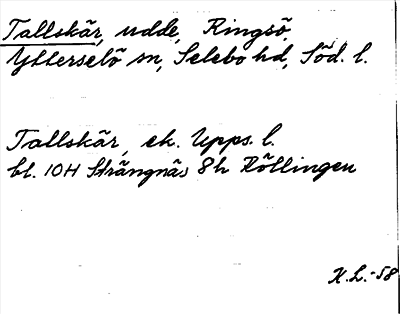 Tallskär, udde, Ringsö,
Ytterselö sn, Selebo hd, Söd. l.
Tallskär, ek. Upps. l.
bl. 10H Strängnäs 8h Röllingen
K.L.-58